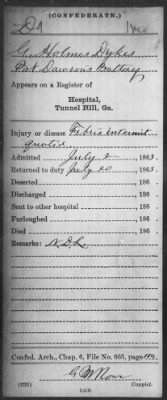 (CONFEDERATE.)
D | Mo
G. Holmes Dykes
Pvt Dawson's Battery
Appears on a Register of
Hospital,
Tunnel Hill, Ga.
Injury or disease Febris intermit
quotid
Admitted July 2, 1863.
Returned to duty July 20, 1863.
Deserted, 186 .
Discharged, 186 .
Sent to other hospital, 186 .
Furloughed, 186 .
Died, 186 .
Remarks:
Confed. Arch., Chap. 6, File No. 653, page
(635)
Copyist.